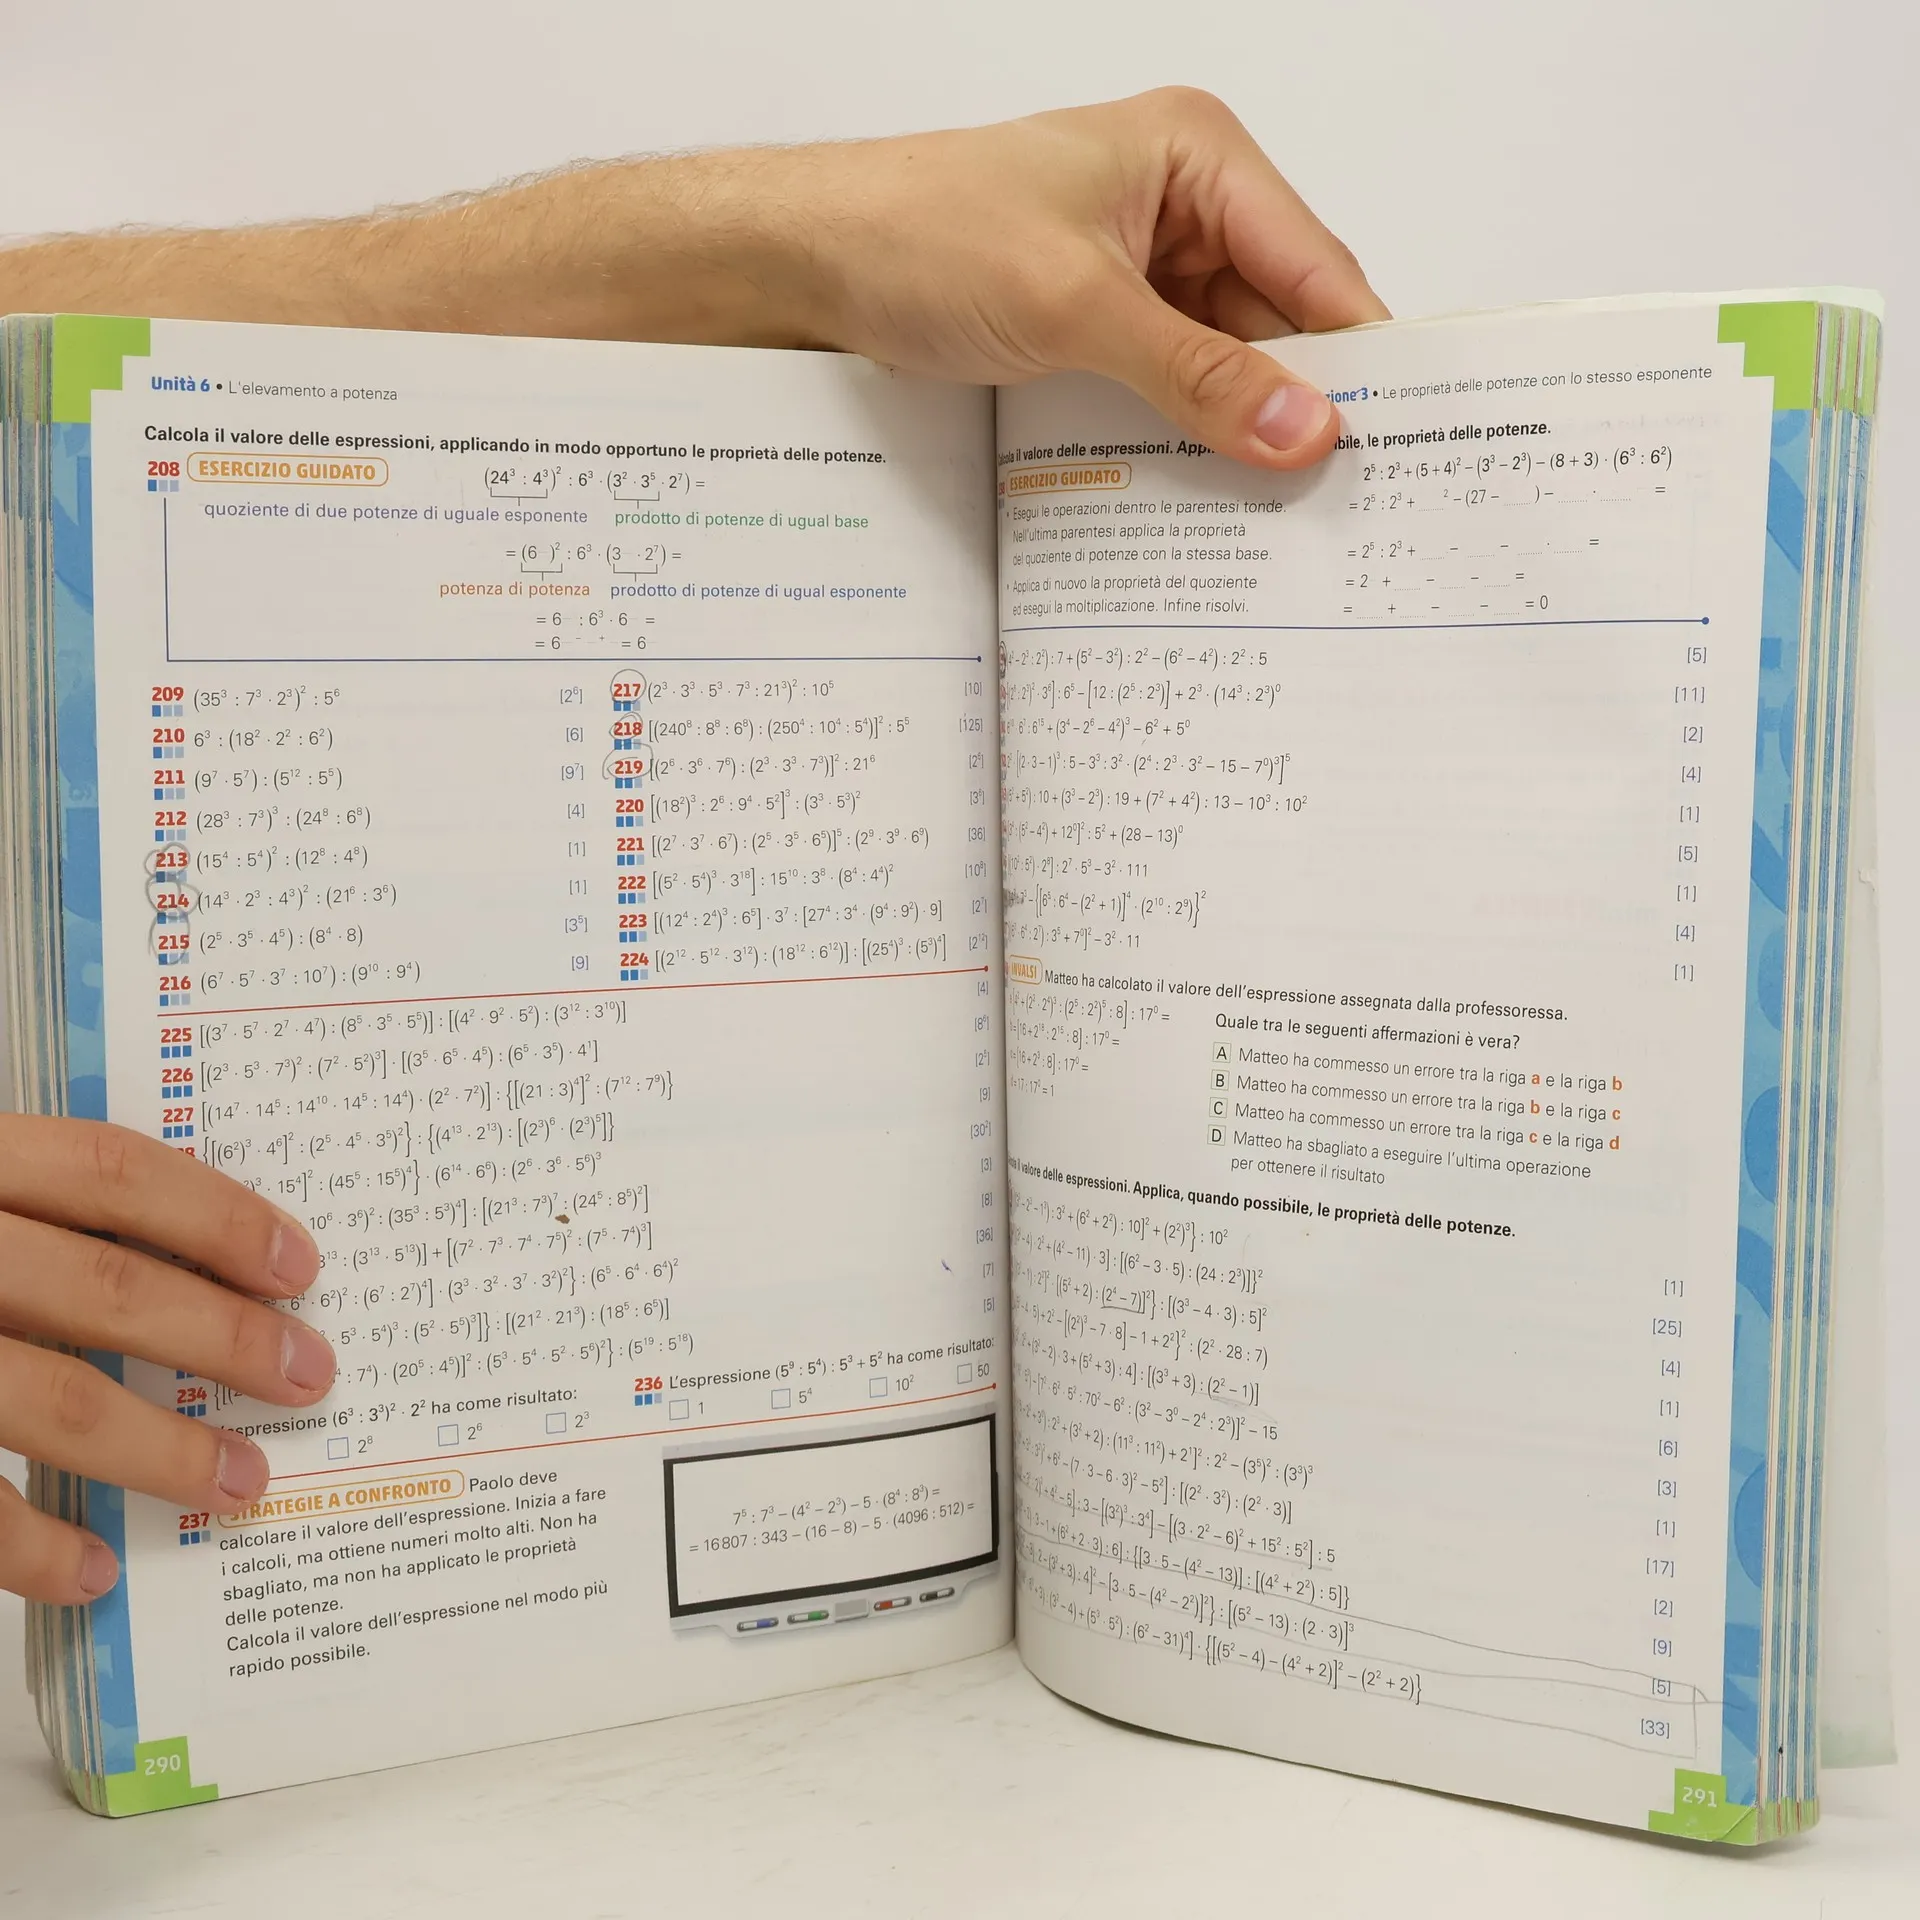 Unità 6 • L'elevamento a potenza
Calcola il valore delle espressioni, applicando in modo opportuno le proprietà delle potenze.
208 ESERCIZIO GUIDATO (24³ : 4³)² : 6³ · (3² · 3⁵ · 2⁷) =
quoziente di due potenze di uguale esponente prodotto di potenze di ugual base
= (6 )² : 6³ · (3 · 2⁷) =
potenza di potenza prodotto di potenze di ugual esponente
= 6 : 6³ · 6 =
= 6 – + = 6
209 (35³ : 7³ · 2³)² : 5⁶ [2⁶]
210 6³ : (18² · 2² : 6²) [6]
211 (9⁷ · 5⁷) : (5¹² : 5⁵) [9⁷]
212 (28³ : 7³)³ : (24⁸ : 6⁸) [4]
213 (15⁴ : 5⁴)² : (12⁸ : 4⁸) [1]
214 (14³ · 2³ : 4³)² : (21⁶ : 3⁶) [1]
215 (2⁵ · 3⁵ · 4⁵) : (8⁴ · 8) [3⁵]
216 (6⁷ · 5⁷ · 3⁷ : 10⁷) : (9¹⁰ : 9⁴) [9]
217 (2³ · 3³ · 5³ · 7³ : 21³)² : 10⁵ [10]
218 [(240⁸ : 8⁸ : 6⁸) : (250⁴ : 10⁴ : 5⁴)]² : 5⁵ [125]
219 [(2⁶ · 3⁶ · 7⁶) : (2³ · 3³ · 7³)]² : 21⁶ [2⁶]
220 [(18²)³ : 2⁶ : 9⁴ · 5²]³ : (3³ · 5³)² [3⁶]
221 [(2⁷ · 3⁷ · 6⁷) : (2⁵ · 3⁵ · 6⁵)]⁵ : (2⁹ · 3⁹ · 6⁹) [36]
222 [(5² · 5⁴)³ · 3¹⁸] : 15¹⁰ : 3⁸ · (8⁴ : 4⁴)² [10⁸]
223 [(12⁴ : 2⁴)³ : 6⁵] · 3⁷ : [27⁴ : 3⁴ · (9⁴ : 9²) · 9] [2⁷]
224 [(2¹² · 5¹² · 3¹²) : (18¹² : 6¹²)] : [(25⁴)³ : (5³)⁴] [2¹²]
225 [(3⁷ · 5⁷ · 2⁷ · 4⁷) : (8⁵ · 3⁵ · 5⁵)] : [(4² · 9² · 5²) : (3¹² : 3¹⁰)] [4]
226 [(2³ · 5³ · 7³)² : (7² · 5²)³] · [(3⁵ · 6⁵ · 4⁵) : (6⁵ · 3⁵) · 4¹] [8⁶]
227 [(14⁷ · 14⁵ : 14¹⁰ · 14⁵ : 14⁴) · (2² · 7²)] : {[(21 : 3)⁴]² : (7¹² : 7⁹)} [2⁵]
{[(6²)³ · 4⁶]² : (2⁵ · 4⁵ · 3⁵)²} : {(4¹³ · 2¹³) : [(2³)⁶ · (2³)⁵]} [9]
· 15⁴]² : (45⁵ : 15⁵)⁴} · (6¹⁴ · 6⁶) : (2⁶ · 3⁶ · 5⁶)³ [30²]
10⁶ · 3⁶)² : (35³ : 5³)⁴] : [(21³ : 7³)⁷ : (24⁵ : 8⁵)²] [3]
: (3¹³ · 5¹³)] + [(7² · 7³ · 7⁴ · 7⁵)² : (7⁵ · 7⁴)³] [8]
· 6⁴ · 6²)² : (6⁷ : 2⁷)⁴] · (3³ · 3² · 3⁷ · 3²)²} : (6⁵ · 6⁴ · 6⁴)² [36]
· 5³ · 5⁴)³ : (5² · 5⁵)³]} : [(21² · 21³) : (18⁵ : 6⁵)] [7]
234 : 7⁴) · (20⁵ : 4⁵)]² : (5³ · 5⁴ · 5² · 5⁶)²} : (5¹⁹ : 5¹⁸) [5]
espressione (6³ : 3³)² · 2² ha come risultato:
2⁸ 2⁶ 2³
236 L'espressione (5⁹ : 5⁴) : 5³ + 5² ha come risultato:
1 5⁴ 10² 50
237 STRATEGIE A CONFRONTO Paolo deve
calcolare il valore dell'espressione. Inizia a fare
i calcoli, ma ottiene numeri molto alti. Non ha
sbagliato, ma non ha applicato le proprietà
delle potenze.
Calcola il valore dell'espressione nel modo più
rapido possibile.
7⁵ : 7³ – (4² – 2³) – 5 · (8⁴ : 8³) =
= 16807 : 343 – (16 – 8) – 5 · (4096 : 512) =
290
3 • Le proprietà delle potenze con lo stesso esponente
il valore delle espressioni. le proprietà delle potenze.
ESERCIZIO GUIDATO
2⁵ : 2³ + (5 + 4)² – (3³ – 2³) – (8 + 3) · (6³ : 6²)
• Esegui le operazioni dentro le parentesi tonde.
Nell'ultima parentesi applica la proprietà
del quoziente di potenze con la stessa base.
• Applica di nuovo la proprietà del quoziente
ed esegui la moltiplicazione. Infine risolvi.
= 2⁵ : 2³ + ² – (27 – ) – · =
= 2⁵ : 2³ + – – · =
= 2 + – – =
= + – – = 0
– 2³ : 2²) : 7 + (5² – 3²) : 2² – (6² – 4²) : 2² : 5 [5]
· 3⁶] : 6⁵ – [12 : (2⁵ : 2³)] + 2³ · (14³ : 2³)⁰ [11]
: 6¹⁵ + (3⁴ – 2⁶ – 4²)³ – 6² + 5⁰ [2]
[(2 · 3 – 1)³ : 5 – 3³ : 3² · (2⁴ : 2³ · 3² – 15 – 7⁰)³]⁵ [4]
+ 5²) : 10 + (3³ – 2³) : 19 + (7² + 4²) : 13 – 10³ : 10² [1]
(5² – 4²) + 12⁰]² : 5² + (28 – 13)⁰ [5]
: 5²) · 2⁸] : 2⁷ · 5³ – 3² · 111 [1]
– {[6⁵ : 6⁴ – (2² + 1)]⁴ · (2¹⁰ : 2⁹)}² [4]
: 2⁷) : 3⁵ + 7⁰]² – 3² · 11 [1]
INVALSI Matteo ha calcolato il valore dell'espressione assegnata dalla professoressa.
+ (2² · 2⁴)³ : (2⁵ : 2²)⁵ : 8] : 17⁰ =
= [16 + 2¹⁸ : 2¹⁵ : 8] : 17⁰ =
= [16 + 2³ : 8] : 17⁰ =
= 17 : 17⁰ = 1
Quale tra le seguenti affermazioni è vera?
A Matteo ha commesso un errore tra la riga a e la riga b
B Matteo ha commesso un errore tra la riga b e la riga c
C Matteo ha commesso un errore tra la riga c e la riga d
D Matteo ha sbagliato a eseguire l'ultima operazione
per ottenere il risultato
il valore delle espressioni. Applica, quando possibile, le proprietà delle potenze.
: 3² + (6² + 2²) : 10]² + (2²)³} : 10² [1]
· 2³ + (4² – 11) · 3] : [(6² – 3 · 5) : (24 : 2³)]}² [25]
· [(5² + 2) : (2⁴ – 7)]²} : [(3³ – 4 · 3) : 5]² [4]
+ 2² – [(2²)³ – 7 · 8] – 1 + 2²}² : (2² · 28 : 7) [1]
– 2) · 3 + (5² + 3) : 4] : [(3³ + 3) : (2² – 1)] [6]
· 6² · 5² : 70² – 6² : (3² – 3⁰ – 2⁴ : 2³)]² – 15 [3]
: 2³ + (3² + 2) : (11³ : 11²) + 2¹]² : 2² – (3⁵)² : (3³)³ [1]
+ 6² – (7 · 3 – 6 · 3)² – 5²] : [(2² · 3²) : (2² · 3)] [17]
+ 4² – 5] : 3 – [(3²)³ : 3⁴] – [(3 · 2² – 6)² + 15² : 5²] : 5 [2]
· 3 – 1 + (6² + 2 · 3) : 6] : {[3 · 5 – (4² – 13)] : [(4² + 2²) : 5]} [9]
· 2 – (3² + 3) : 4]² – [3 · 5 – (4² – 2²)]²} : [(5² – 13) : (2 · 3)]³ [5]
: (3³ – 4) + (5³ · 5²) : (6² – 31)⁴] · {[(5² – 4) – (4² + 2)]² – (2² + 2)} [33]
291